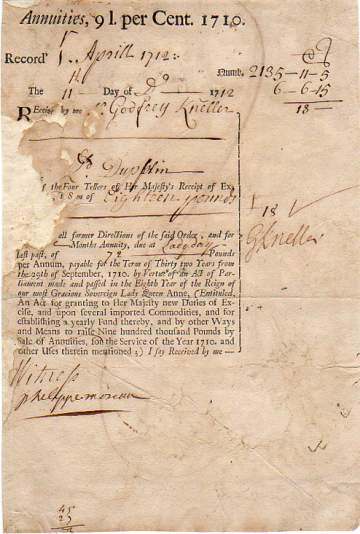 Annuities, 9 l. per Cent. 1710.
Record
1 Aprill 1712
Numb. 2135-11-5
The 11th Day of Do 1712
6-6-15
18-
Receiv by me Sr Godfrey Kneller
Dupplin
the Four Tellers of Her Majesty's Receipt of Ex
Sum of Eighteen pounds
18
all former Directions of the said Order, and for
Months Annuity, due at Ladyday
GKneller
last past, of 72 Pounds
per Annum, payable for the Term of Thirty two Years from
the 29th of September, 1710. by Vertue of an Act of Par-
liament made and passed in the Eighth Year of the Reign of
our most Gracious Sovereign Lady Queen Anne, (Entituled,
An Act for granting to Her Majesty new Duties of Ex-
cise, and upon several imported Commodities, and for
establishing a yearly Fund thereby, and by other Ways
and Means to raise Nine hundred thousand Pounds by
Sale of Annuities, for the Service of the Year 1710. and
other Uses therein mentioned;) I say Received by me —
Witness
phelippe moreau
45
27